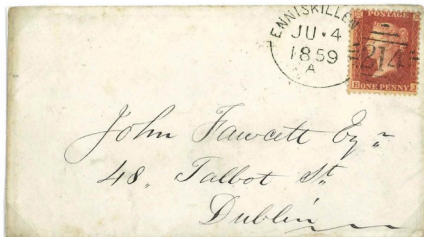 ENNISKILLEN
JU · 4
1859
A
POSTAGE
214
ONE PENNY
John Fawcett Esqr
48, Talbot St
Dublin